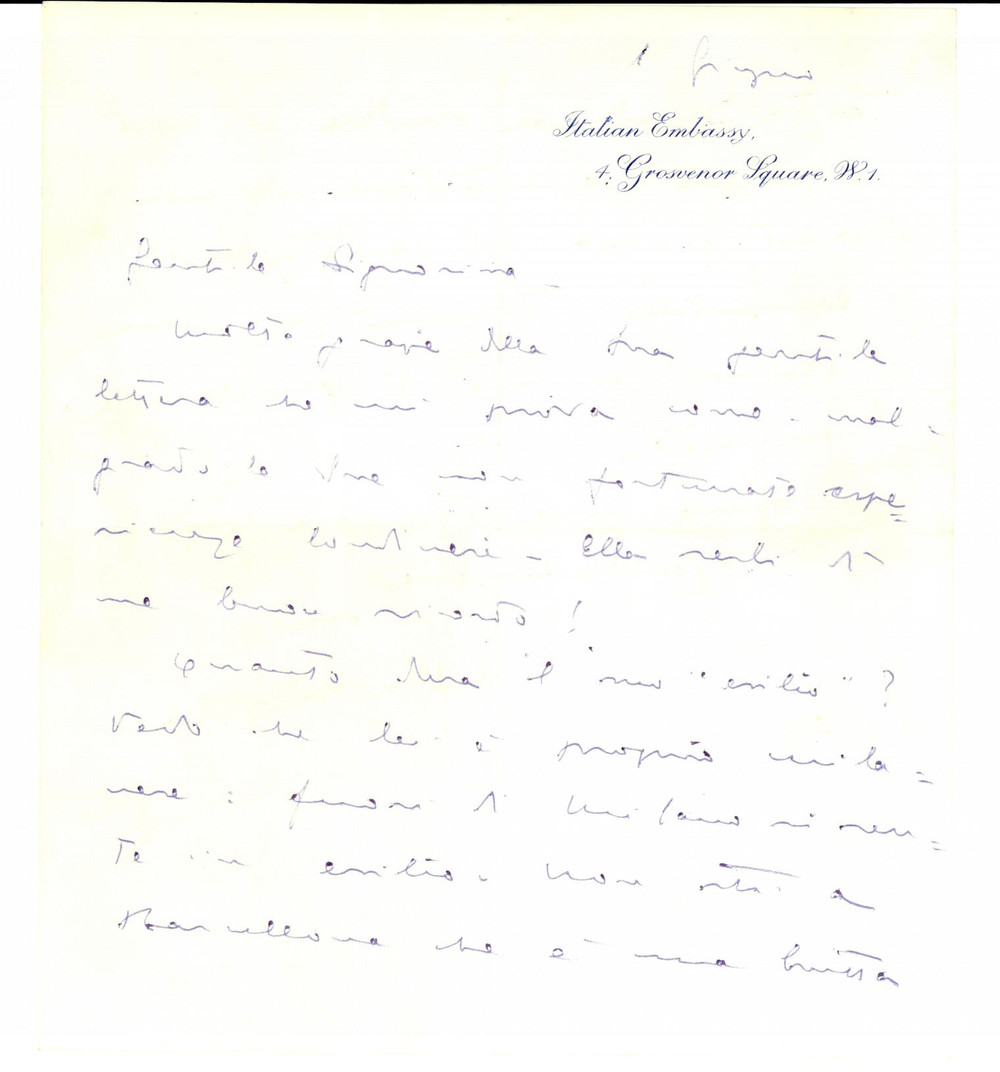 1 Giugno
Italian Embassy,
4, Grosvenor Square, W.1.
Gentile Signorina –
Molte grazie della Sua gentile
lettera che mi prova come – mal=
grado le Sue non fortunate espe=
rienze londinesi – Ella serbi di
me buon ricordo!
Quanto dura il suo "esilio"?
Vedo che lei è proprio mila=
nese: fuori di Milano si sen=
te in esilio. Non stia a
Barcellona che è una brutta